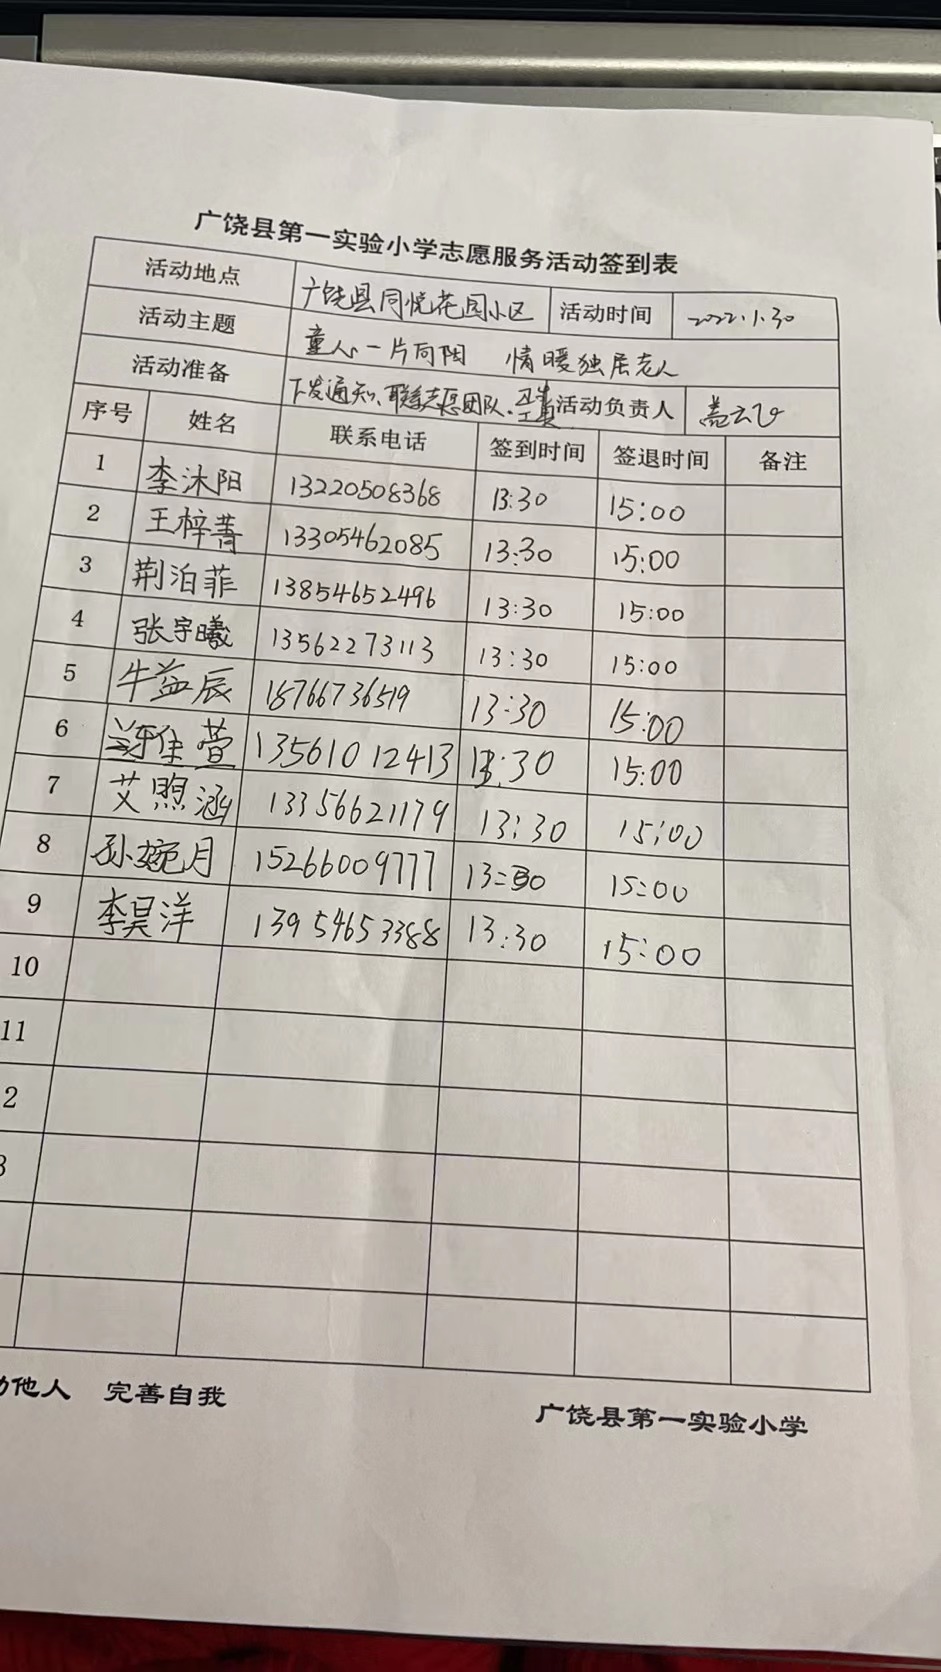 广饶县第一实验小学志愿服务活动签到表
活动地点 广饶县同悦花园小区 活动时间 2022.1.30
活动主题 童心一片向阳 情暖独居老人
活动准备 下发通知、联系志愿团队、 活动负责人 盖云飞
序号 姓名 联系电话 签到时间 签退时间 备注
1 李沐阳 13220508368 13:30 15:00
2 王梓菁 13305462085 13:30 15:00
3 荆泊菲 13854652496 13:30 15:00
4 张宇曦 13562273113 13:30 15:00
5 牛益辰 18766736519 13:30 15:00
6 佳萱 13561012413 13:30 15:00
7 艾煦涵 13356621179 13:30 15:00
8 孙婉月 15266009777 13:30 15:00
9 李昊洋 13954653388 13:30 15:00
10
11
2
3
他人 完善自我
广饶县第一实验小学